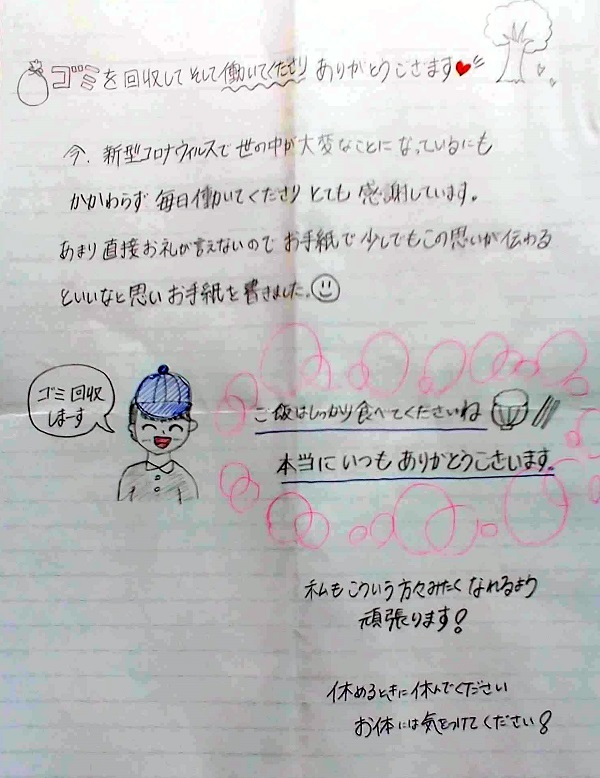 ゴミを回収してそして働いてくださりありがとうござます
今、新型コロナウィルスで世の中が大変なことになっているにも
かかわらず毎日働いてくださりとても感謝しています。
あまり直接お礼が言えないのでお手紙で少しでもこの思いが伝わる
といいなと思いお手紙を書きました。
ゴミ回収
しまーす
ご飯はしっかり食べてくださいね
本当にいつもありがとうございます。
私もこういう方々みたくなれるよう
頑張ります!
休めるときに休んでください
お体には気をつけてください!